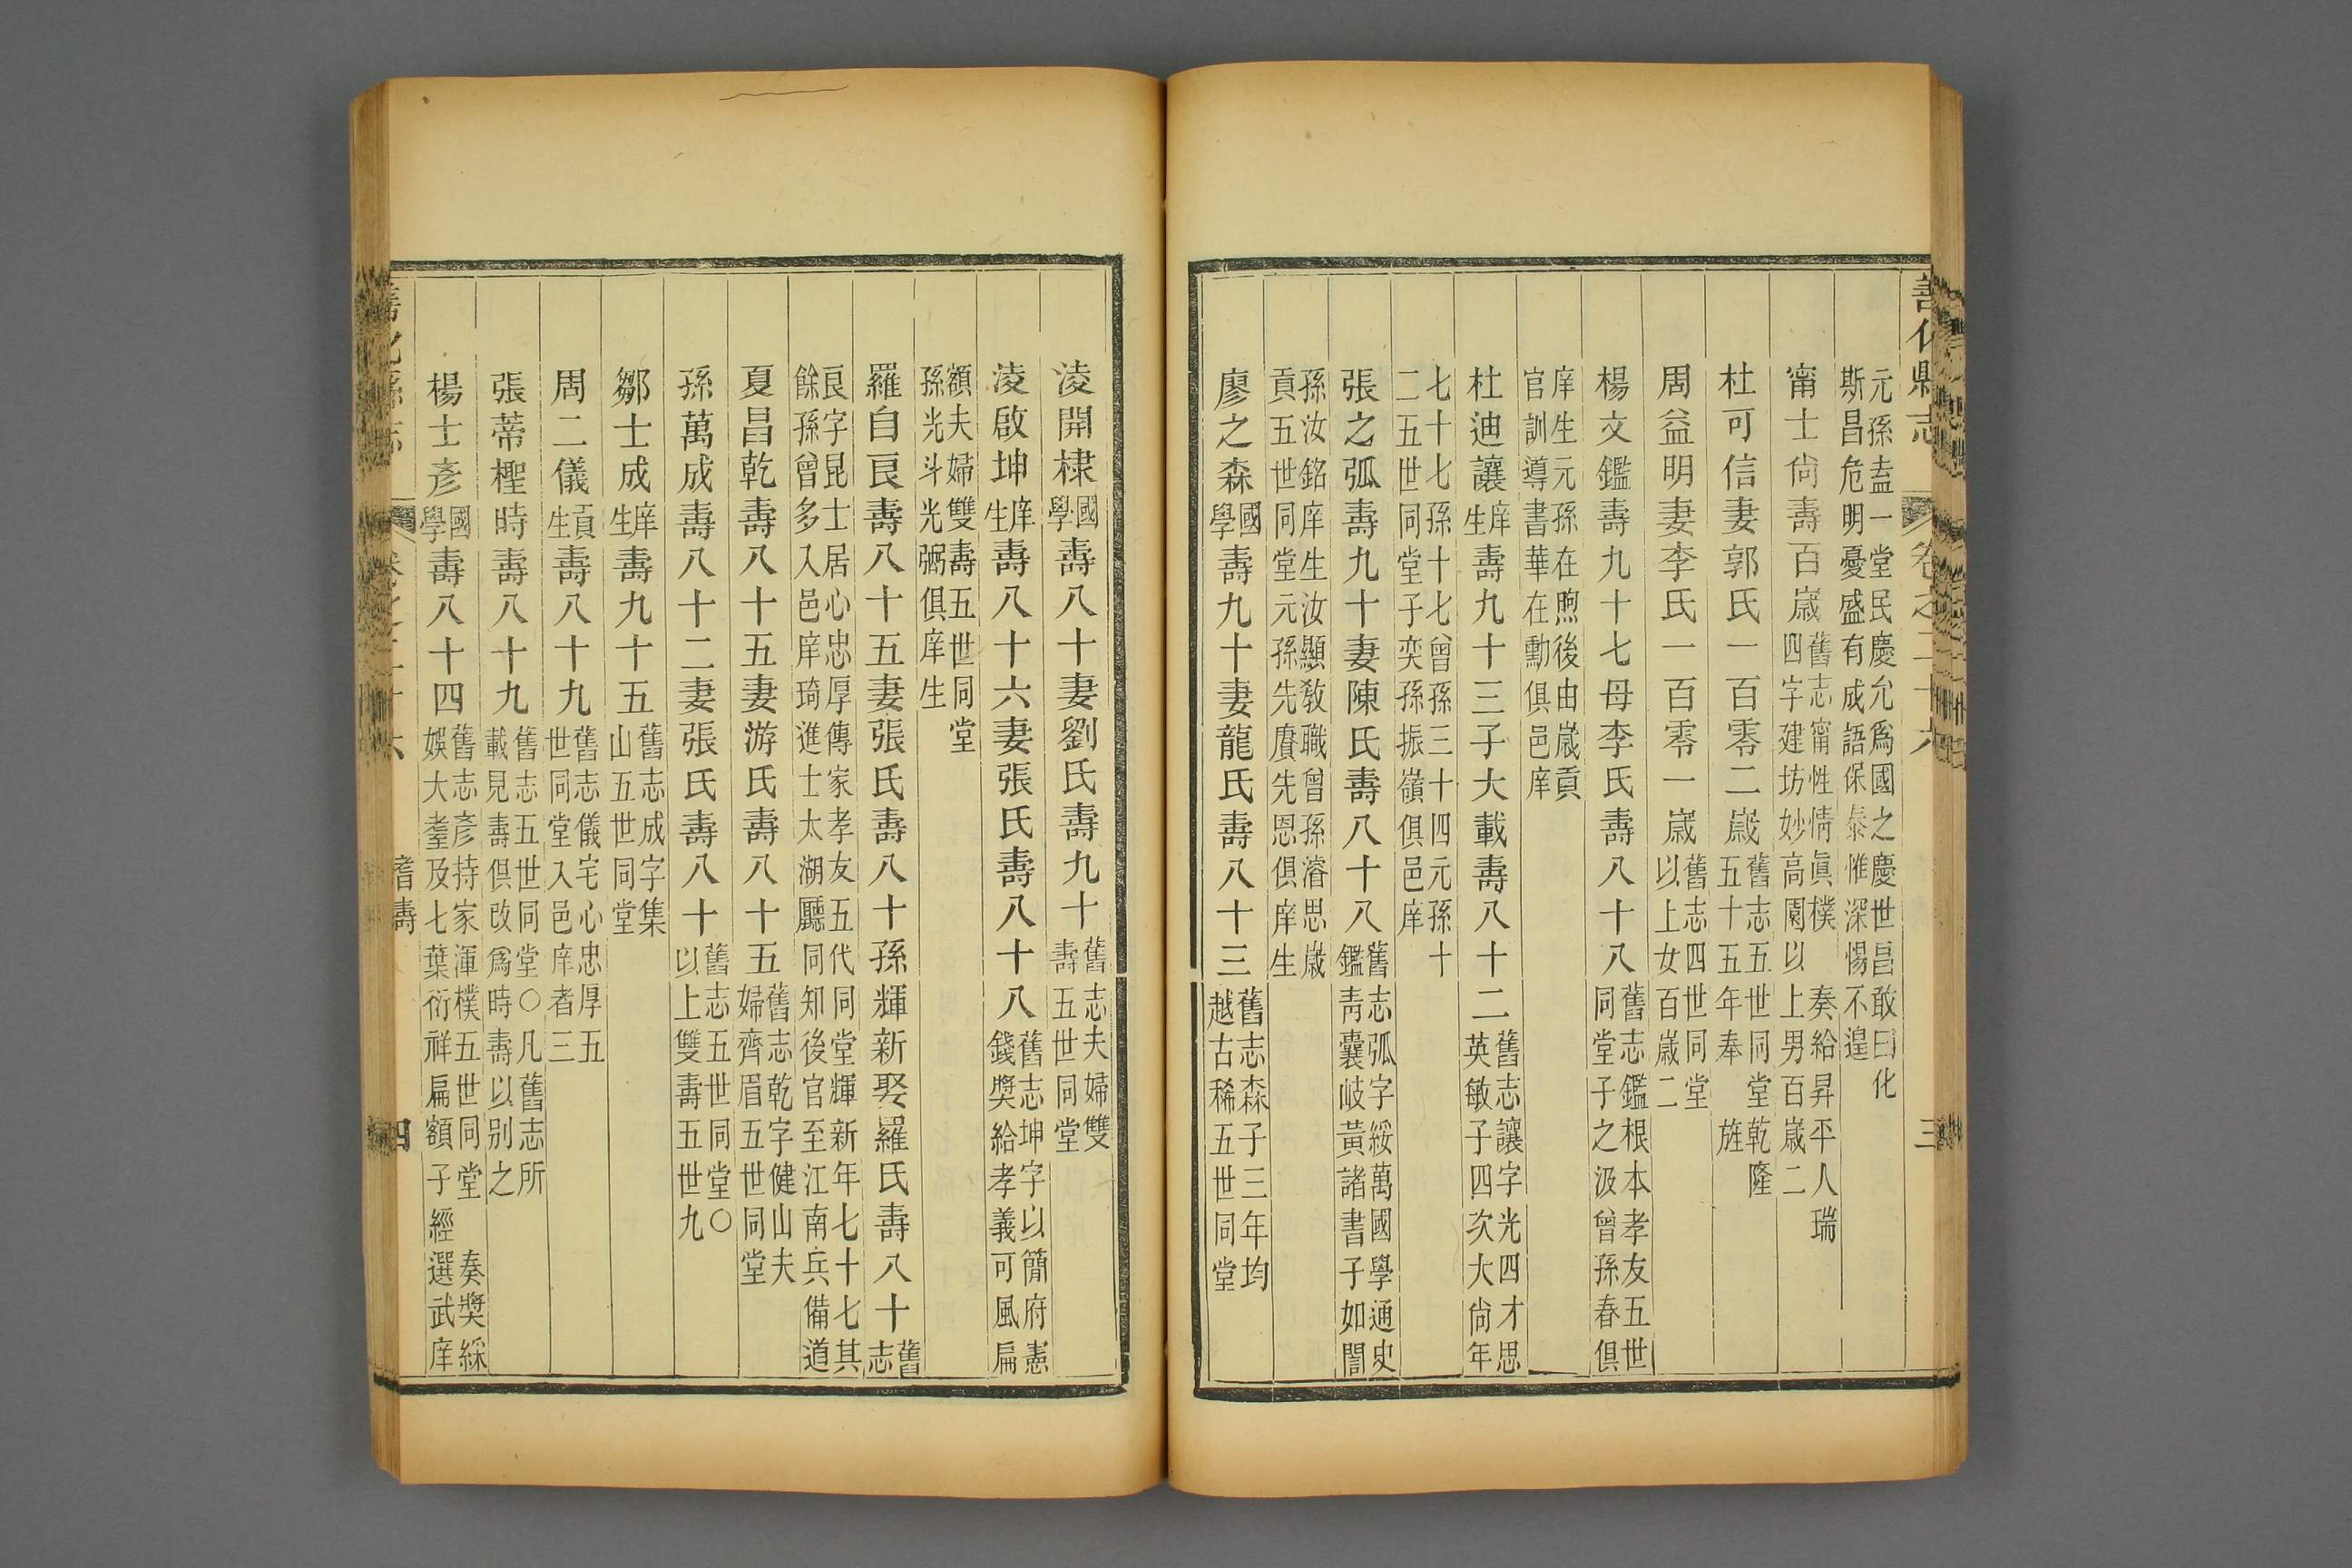 善化縣志
卷之二十六
三
元孫盍一堂民慶允爲國之慶世昌敢曰化
斯昌危明憂盛有成語保泰惟深惕不遑
甯士尙壽百歲舊志甯性情眞樸 奏給昇平人瑞
四字建坊妙高園以上男百歲二
杜可信妻郭氏一百零二歲舊志五世同堂乾隆
五十五年奉 旌
周益明妻李氏一百零一歲舊志四世同堂
以上女百歲二
楊文鑑壽九十七母李氏壽八十八舊志鑑根本孝友五世
同堂子之汲曾孫春俱
庠生元孫在煦後由歲貢
官訓導書華在勳俱邑庠
杜迪讓庠生壽九十三子大載壽八十二舊志讓字光四才思
英敏子四次大尙年
七十七孫十七曾孫三十四元孫十
二五世同堂子奕孫振嶺俱邑庠
張之弧壽九十妻陳氏壽八十八舊志弧字綏萬國學通史
鑑靑囊岐黃諸書子如誾
孫汝銘庠生汝顯敎職曾孫濬思歲
貢五世同堂元孫先賡先恩俱庠生
廖之森國學壽九十妻龍氏壽八十三舊志森子三年均
越古稀五世同堂
淩開棣國學壽八十妻劉氏壽九十舊志夫婦雙
壽五世同堂
淩啟坤庠生壽八十六妻張氏壽八十八舊志坤字以簡府憲
錢獎給孝義可風扁
額夫婦雙壽五世同堂
孫光斗光弼俱庠生
羅自良壽八十五妻張氏壽八十孫輝新娶羅氏壽八十舊志
良字昆士居心忠厚傳家孝友五代同堂輝新年七十七其
餘孫曾多入邑庠琦進士太湖廳同知後官至江南兵備道
夏昌乾壽八十五妻游氏壽八十五舊志乾字健山夫
婦齊眉五世同堂
孫萬成壽八十二妻張氏壽八十舊志五世同堂〇
以上雙壽五世九
鄒士成庠生壽九十五舊志成字集
山五世同堂
周二儀貢生壽八十九舊志儀宅心忠厚五
世同堂入邑庠者三
張蒂檉時壽八十九舊志五世同堂〇凡舊志所
載見壽俱改爲時壽以別之
楊士彥國學壽八十四舊志彥持家渾樸五世同堂 奏獎綵
娛大耋及七葉衍祥扁額子經選武庠
善化縣志
卷之二十六
耆壽
四